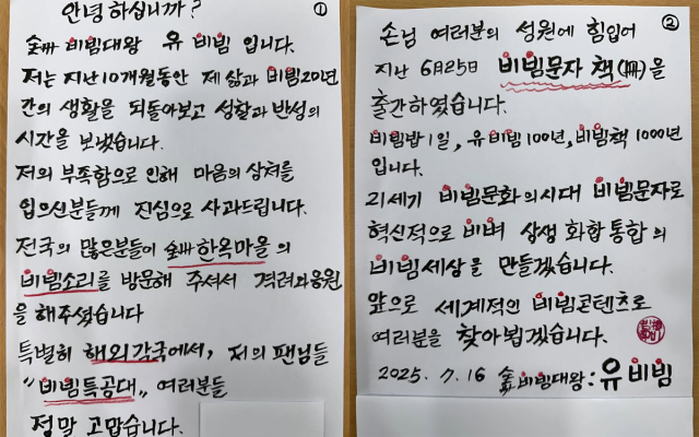 안녕하십니까?
①
비빔대왕 유비빔 입니다.
저는 지난 10개월동안 제 삶과 비빔20년
간의 생활을 되돌아보고 성찰과 반성의
시간을 보냈습니다.
저의 부족함으로 인해 마음의 상처를
입으신분들께 진심으로 사과드립니다.
전국의 많은분들이 한옥마을의
비빔소리를 방문해 주셔서 격려와응원
을 해주셨습니다
특별히 해외각국에서, 저의 팬님들
"비빔특공대„ 여러분들
정말 고맙습니다.
②
손님 여러분의 성원에 힘입어
지난 6月25日 비빔문자 책(冊)을
출간하였습니다.
비빔밥 1일, 유비빔100년, 비빔책 1000년
입니다.
21세기 비빔문화의시대 비빔문자로
혁신적으로 비벼 상생 화합 통합의
비빔세상을 만들겠습니다.
앞으로 세계적인 비빔콘텐츠로
여러분을 찾아뵙겠습니다.
2025. 7. 16 비빔대왕: 유비빔